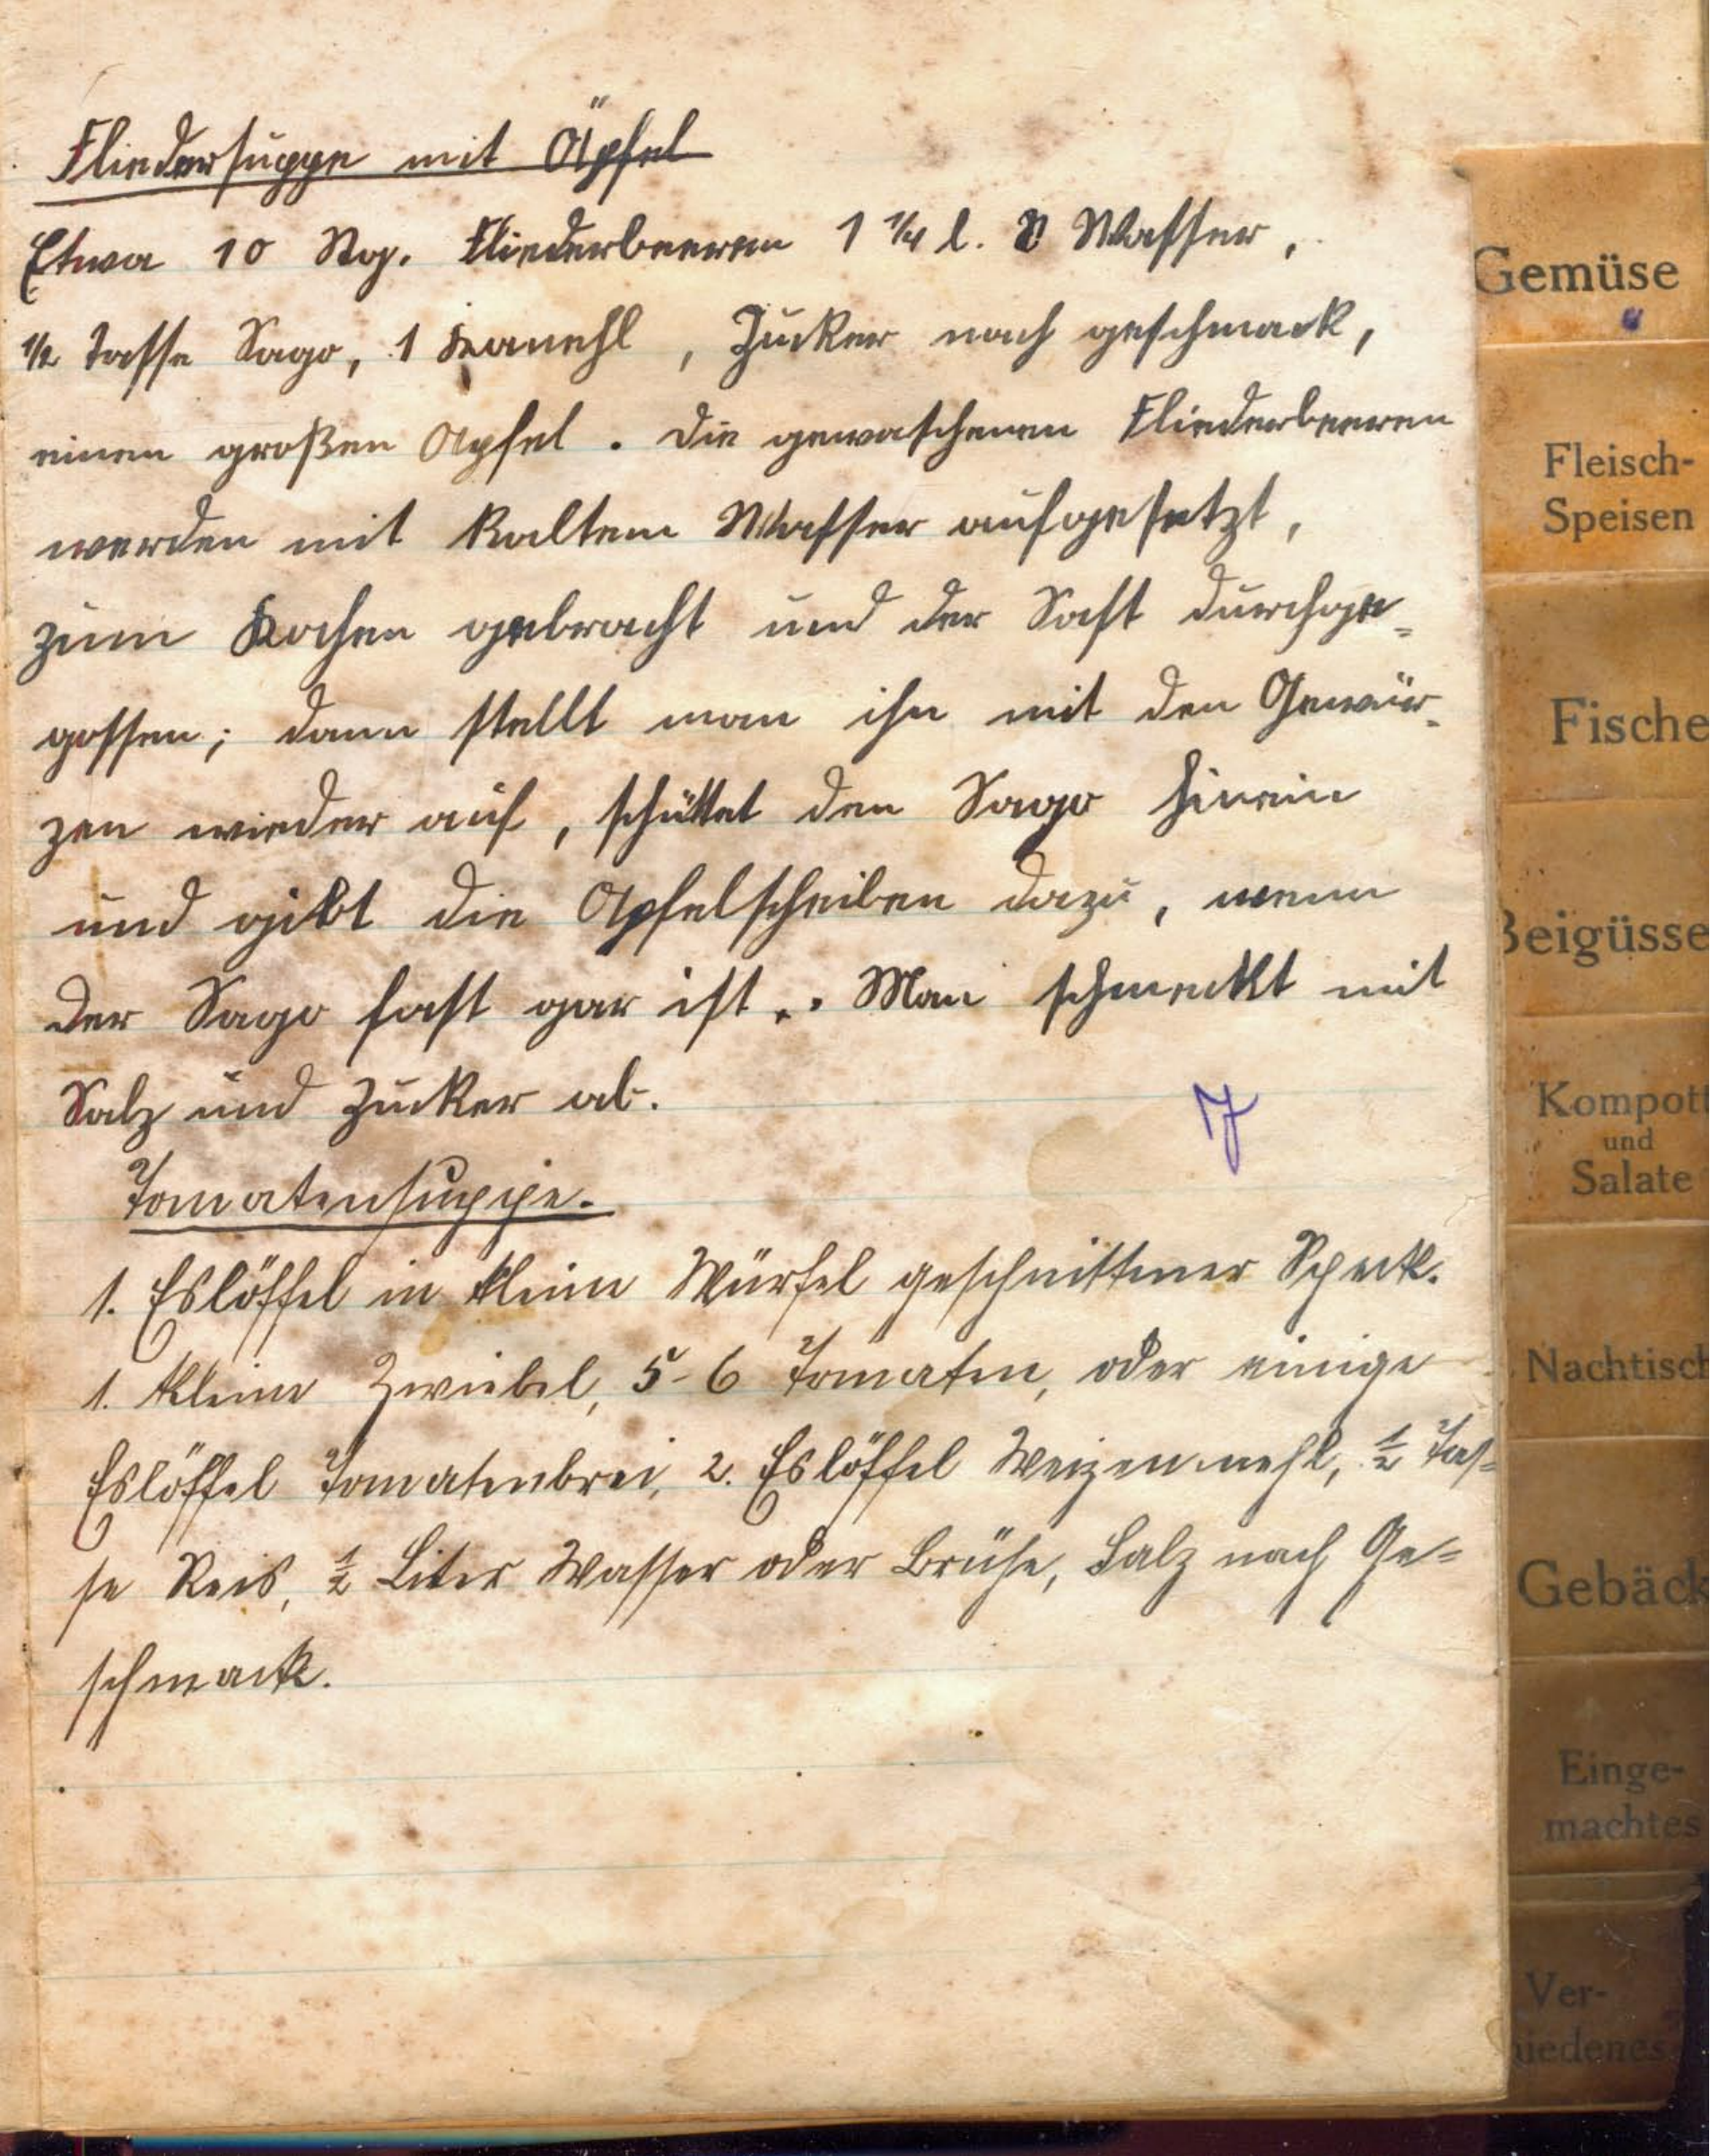 Fliedersuppe mit Äpfel
Etwa 10 Stg. Fliederbeeren 1 1/4 l. Wasser,
1/2 Tasse Sago, 1 Kanehl, Zucker nach geschmack,
einen großen Apfel. Die gewaschenen Fliederbeeren
werden mit kaltem Wasser aufgesetzt,
zum Kochen gebracht und der Saft durchge=
gossen; dann stellt man ihn mit den Gewür=
zen wieder auf, schüttet den Sago hinein
und gibt die Apfelscheiben dazu, wenn
der Sago fast gar ist. Man schmeckt mit
Salz und Zucker ab.
7
Tomatensuppe.
1. Eslöffel in kleine Würfel geschnittener Speck.
1. kleine Zwiebel, 5-6 Tomaten, oder einige
Eslöffel Tomatenbrei, 2. Eslöffel Weizenmehl, 1/2 Tas=
se Reis, 1/2 Liter Wasser oder Brühe, Salz nach Ge=
schmack.
Gemüse
Fleisch-
Speisen
Fische
Beigüsse
Kompott
und
Salate
Nachtisch
Gebäck
Einge-
machtes
Ver-
hiedenes